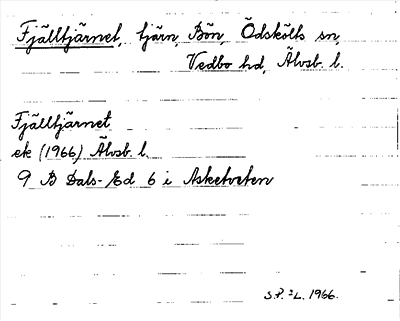 Fjälltjärnet, tjärn, Bön, Ödskölts sn,
Vedbo hd, Älvsb. l.
Fjälltjärnet
ek (1966) Älvsb. l.
9 B Dals-Ed 6 i Asketveten
S.P. L. 1966.